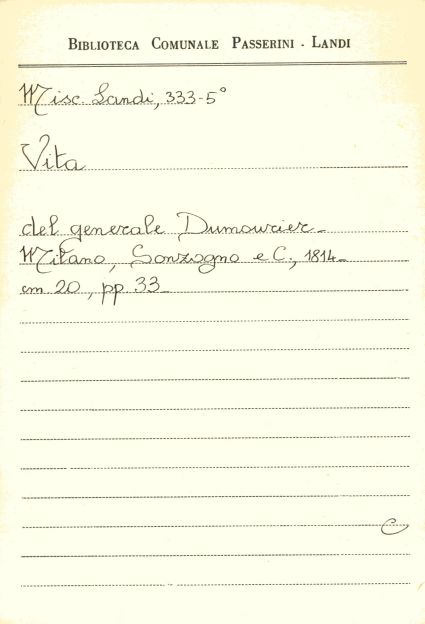 BIBLIOTECA COMUNALE PASSERINI - LANDI
Misc. Landi, 333-5°
Vita
del generale Dumourier_
Milano, Sonzogno e C., 1814_
cm 20, pp 33_
C